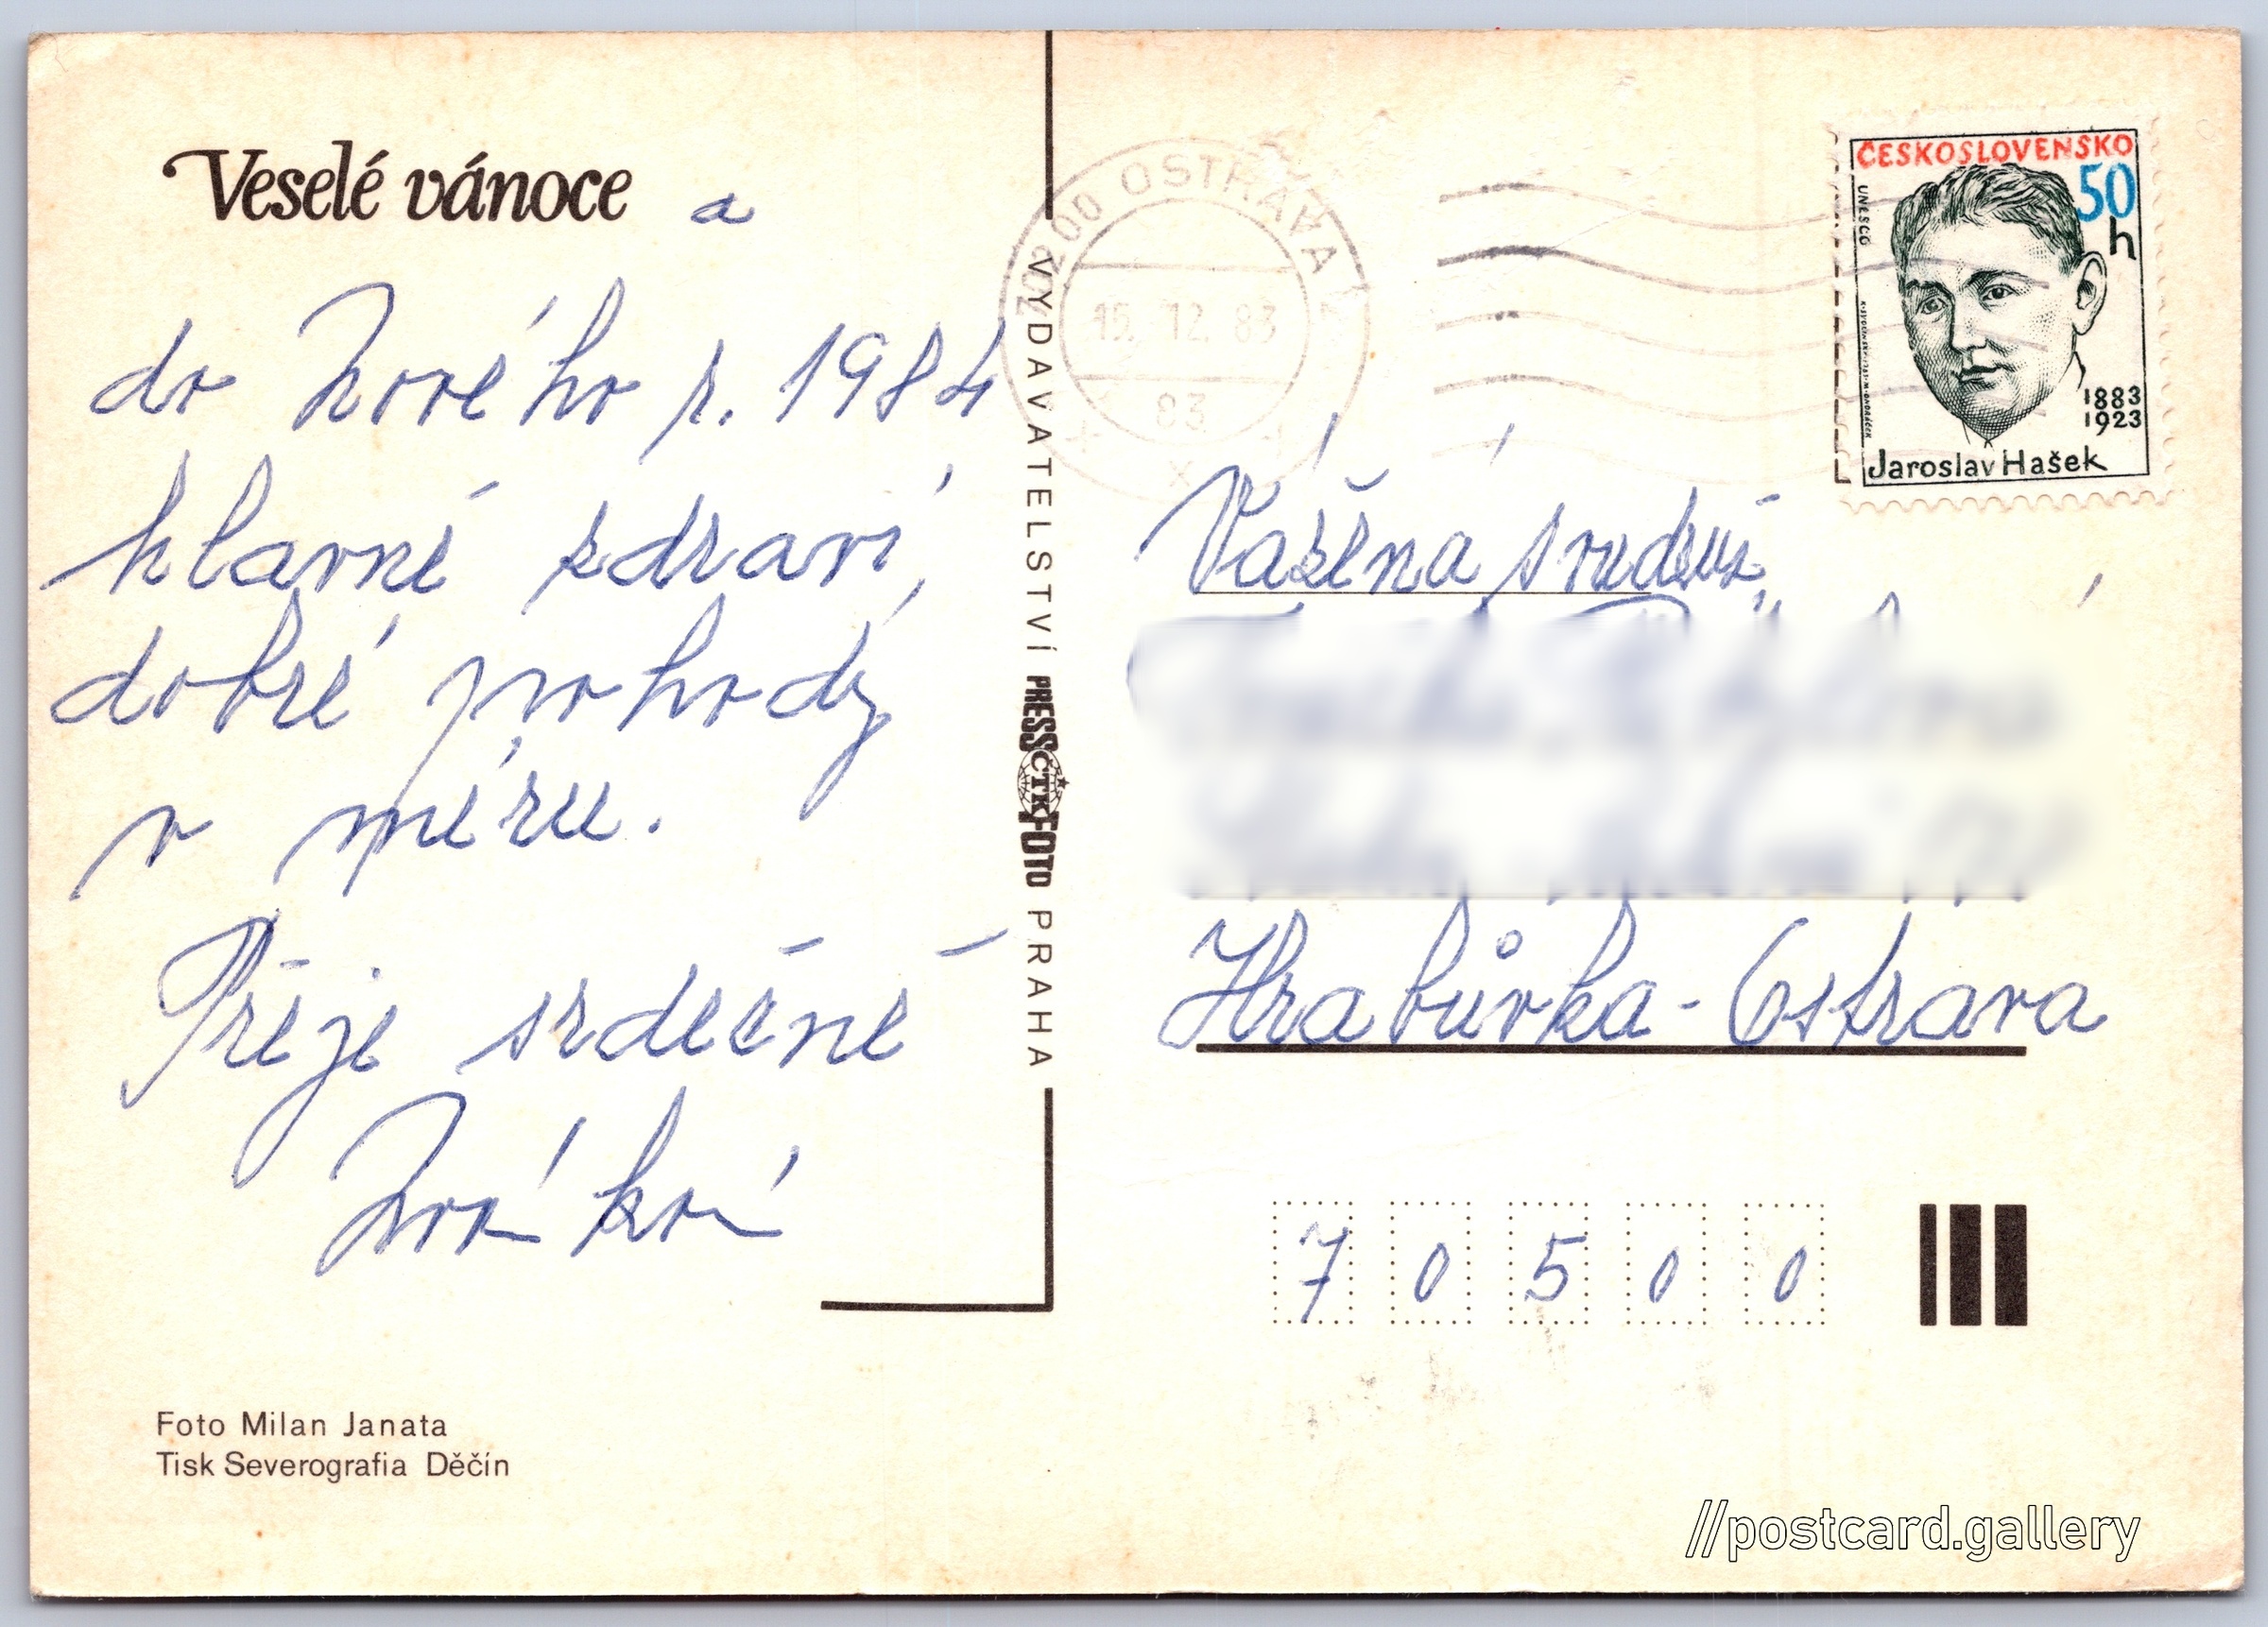 Veselé vánoce a
do Nového r. 1984
hlavně zdraví,
dobré pohody
v míru.
Přeje srdečně
Nováková
Foto Milan Janata
Tisk Severografia Děčín
VYDAVATELSTVÍ PRESSFOTO PRAHA
ČTK
70200 OSTRAVA
15. 12. 83
83
ČESKOSLOVENSKO
50
h
UNESCO
1883
1923
Jaroslav Hašek
Vážená
Hrabůvka - Ostrava
7 0 5 0 0
//postcard.gallery